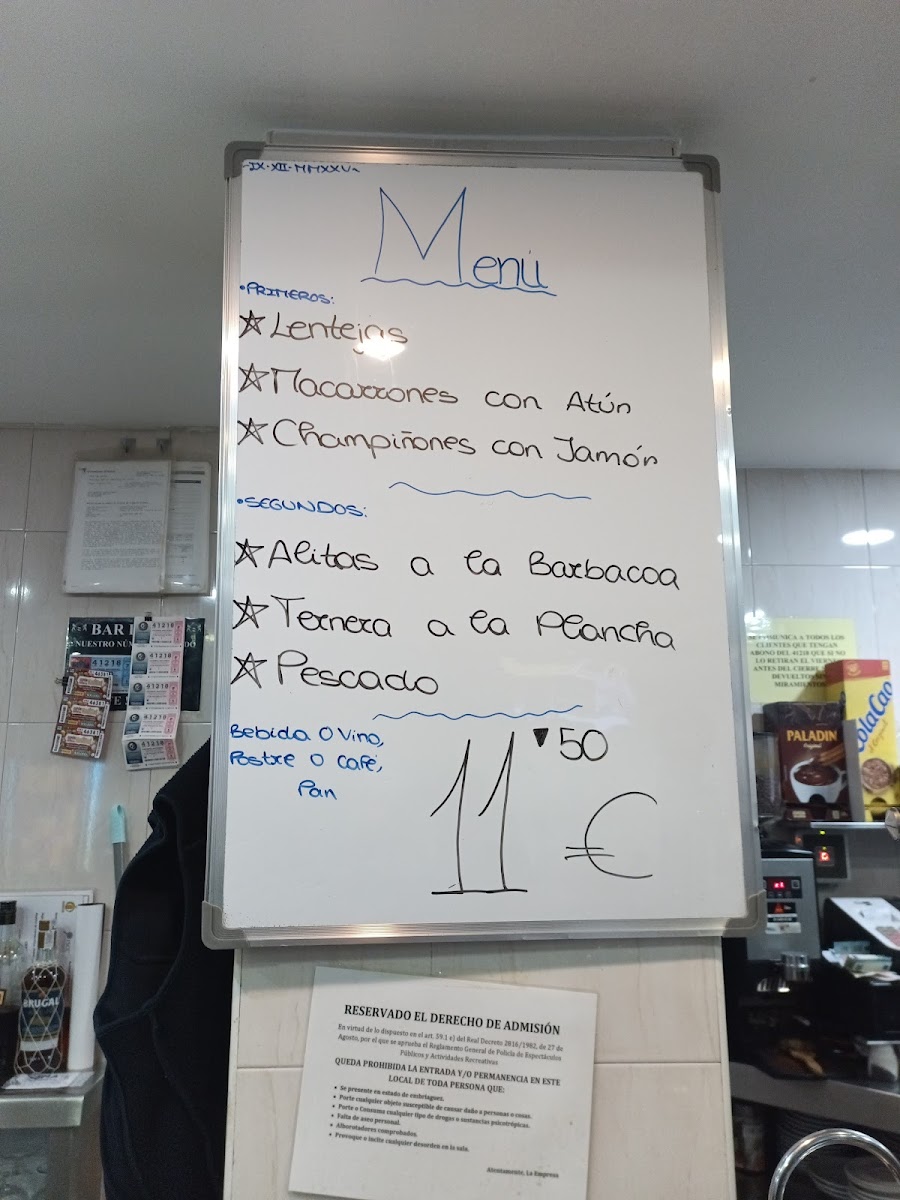 -IX-XII-MMXXV-
Menú
•PRIMEROS:
Lentejas
Macarrones con Atún
Champiñones con Jamón
•SEGUNDOS:
Alitas a la Barbacoa
Ternera a la Plancha
Pescado
Bebida o Vino,
Postre o café,
Pan
11'50 €
BAR
NUESTRO
41218
41218
41218
41218
41218
41218
BRUGAL
COMUNICA A TODOS LOS
CLIENTES QUE TENGAN
ABONO DEL 41218 QUE SI NO
LO RETIRAN EL VIERNES
ANTES DEL CIERRE
DEVUELTOS SIN
MIRAMIENTOS
PALADIN
Original
ColaCao
Original
RESERVADO EL DERECHO DE ADMISIÓN
En virtud de lo dispuesto en el art. 59.1 e) del Real Decreto 2816/1982, de 27 de
Agosto, por el que se aprueba el Reglamento General de Policía de Espectáculos
Públicos y Actividades Recreativas
QUEDA PROHIBIDA LA ENTRADA Y/O PERMANENCIA EN ESTE
LOCAL DE TODA PERSONA QUE:
• Se presente en estado de embriaguez.
• Porte cualquier objeto susceptible de causar daño a personas o cosas.
• Porte o Consuma cualquier tipo de drogas o sustancias psicotrópicas.
• Falta de aseo personal.
• Alborotadores comprobados.
• Provoque o incite cualquier desorden en la sala.
Atentamente, La Empresa